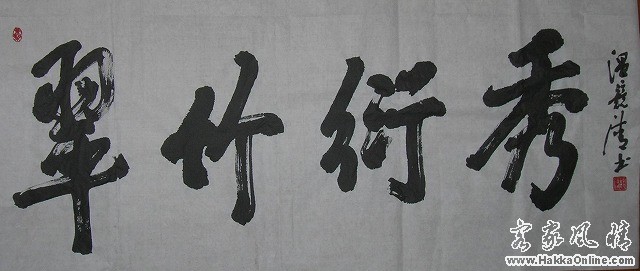 翠竹衍秀
温竞清书
客家风情
www.HakkaOnline.com